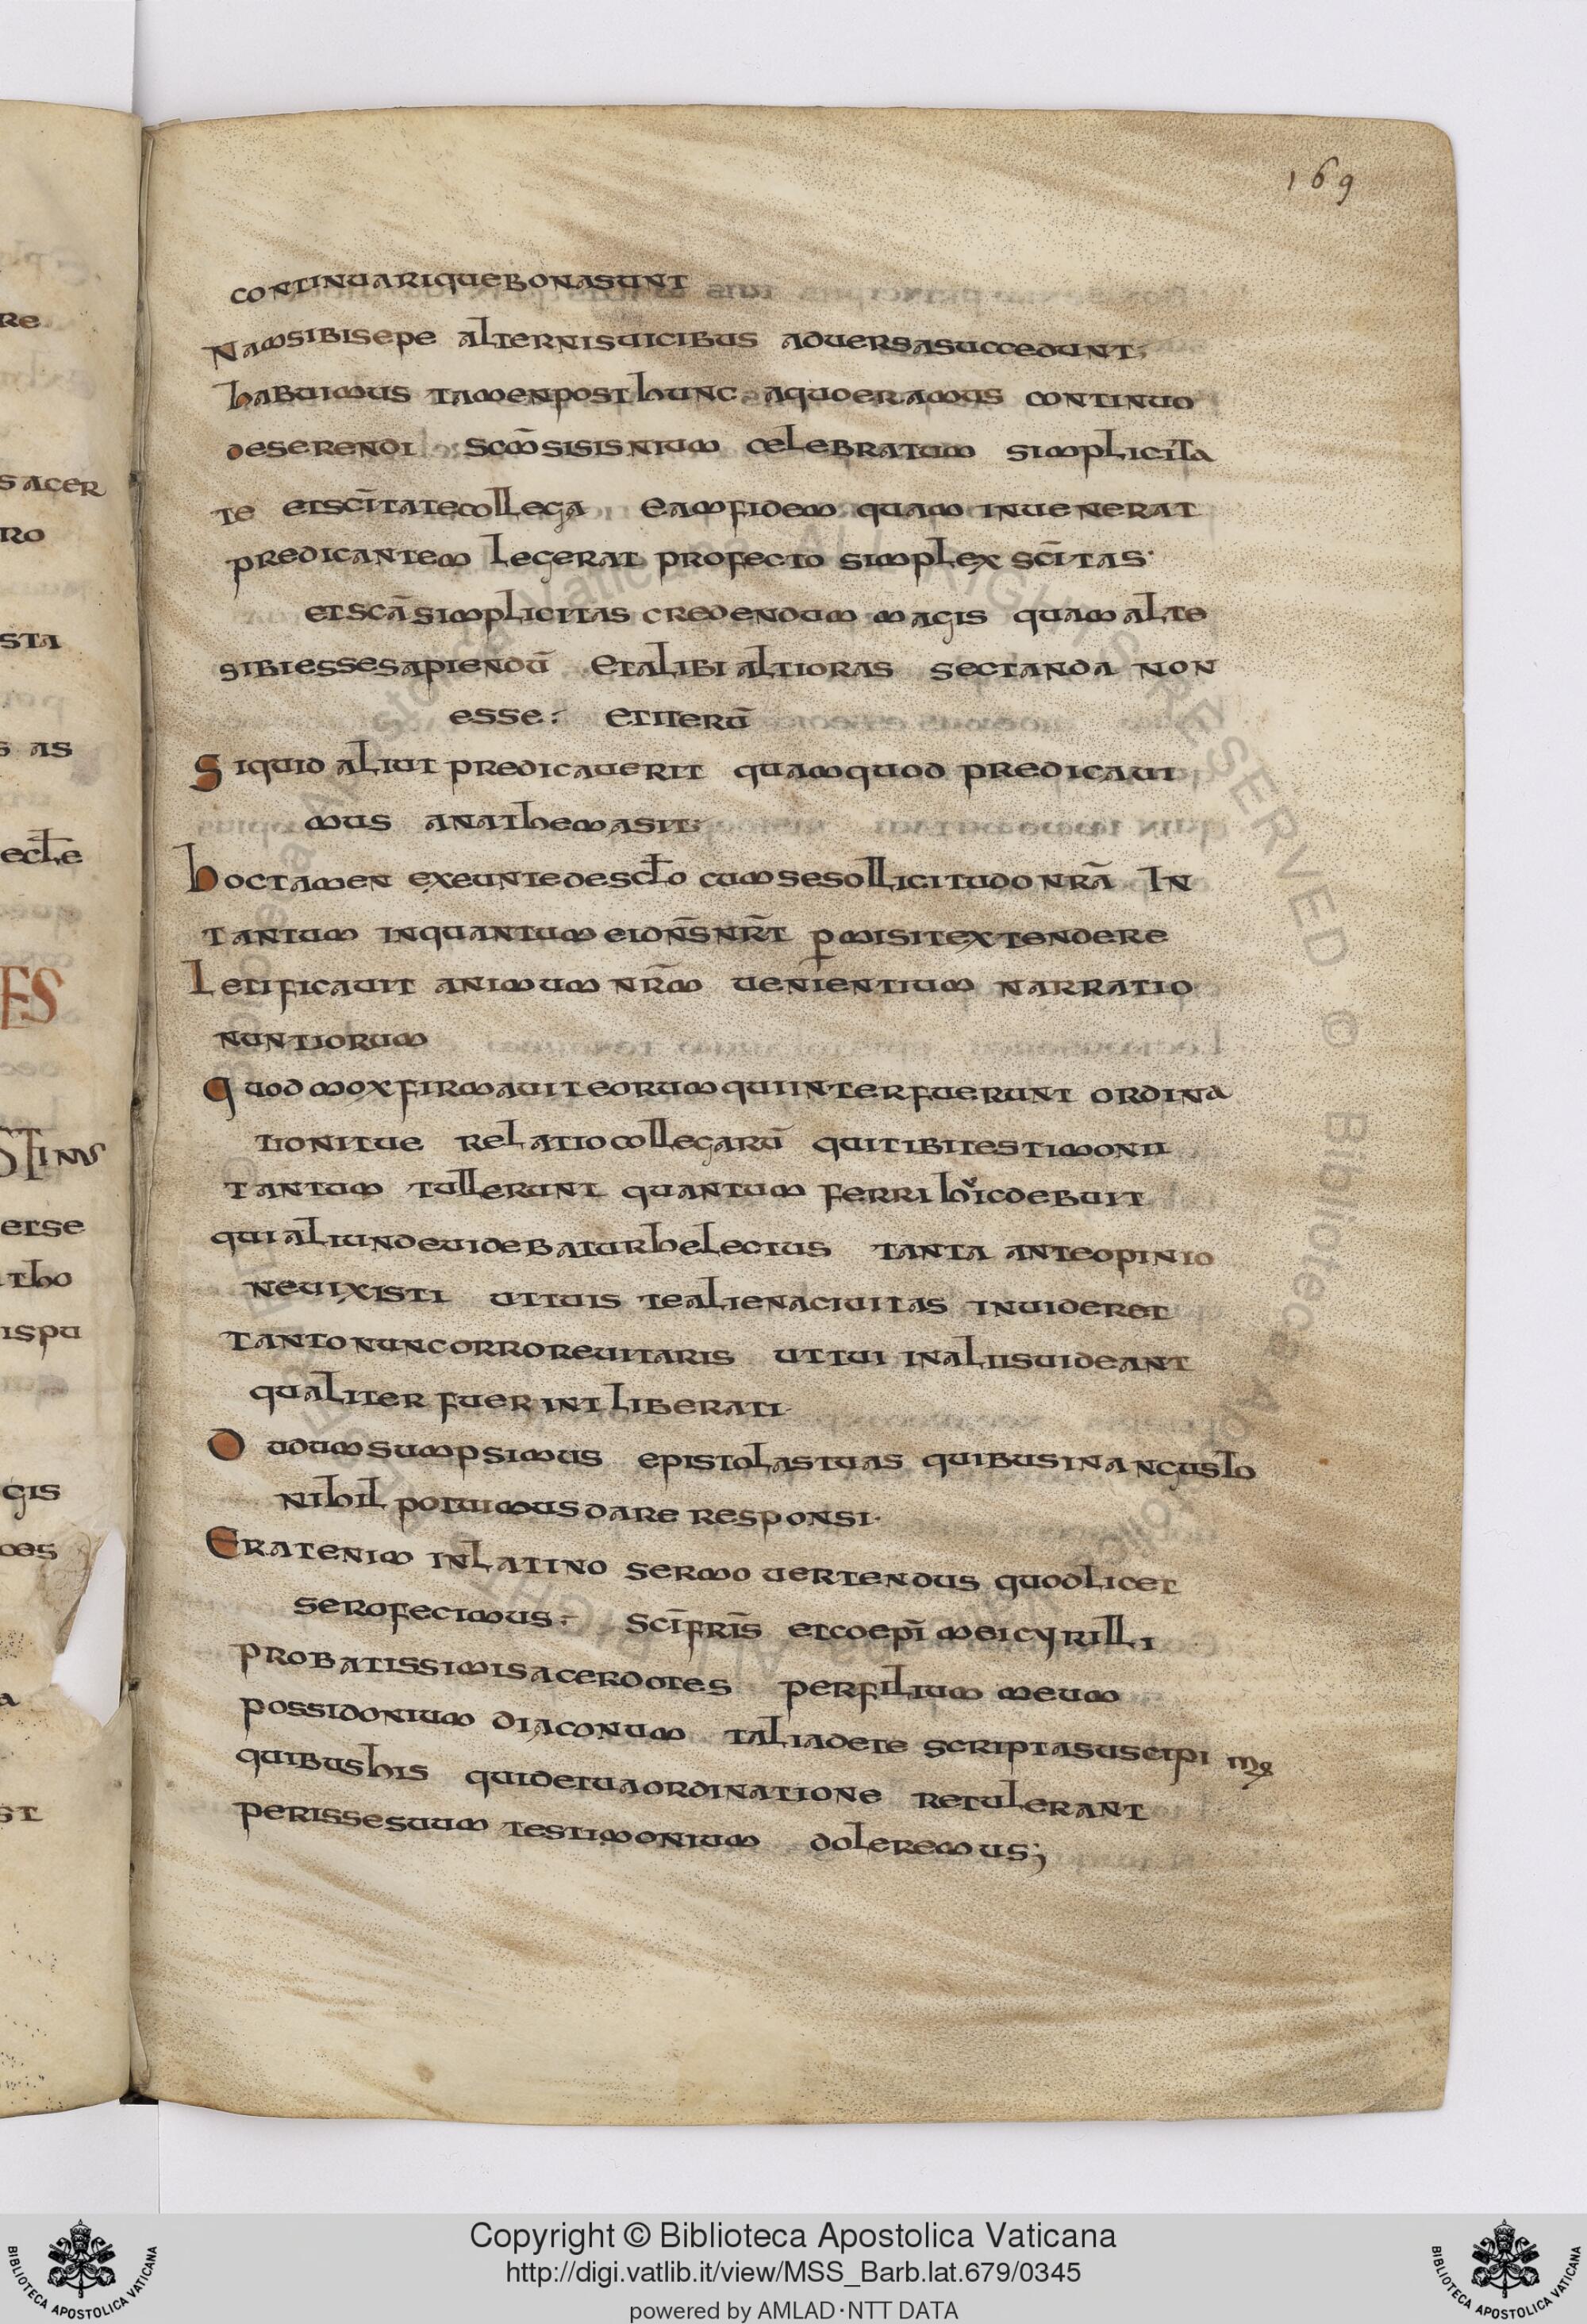 169
continuariquebonasunt
Namsibisepe alternisuicibus aduersasuccedunt;
habuimus tamenposthunc aquoeramus continuo
deserendi scm̄sisisnium celebratum simplicita
te etsc̄itatecollega, eamfidem quam inuenerat
predicantem legerat profecto simplex sc̄itas·
etscāsimplicitas credendum magis quamalte
sibiessesapiendū etalibi altioras sectanda non
esse: etiterū
Siquid aliut predicauerit quamquod predicaui
mus anathemasit:
hoctamen exeuntedesc̄lo cumsesollicitudo nrā In
tantum inquantum eidn̄snr̄t p̱misitextendere
Letificauit animum nr̄m uenientium narratio
nuntiorum
quodmoxfirmauiteorumquiinterfuerunt ordina
tionitue relatiocollegarū quitibitestimonii
tantum tullerunt quantum ferri hicdebuit
quialiundeuidebaturhelectus tanta anteopinio
neuixisti uttuis tealienaciuitas inuideret
tantonuncorroreuitaris uttui inaliisuideant
qualiter fuerint liberati·
Dudumsumpsimus epistolastuas quibusinangusto
nihil potuimusdare responsi·
Eratenim inlatino sermo uertendus quodlicet
serofecimus: Sc̄ifrīs etcoepī meicyrilli
probatissimisacerdotes perfilium meum
possidonium diaconum taliadete scriptasuscipi mꝰ
quibushis quidetuaordinatione retulerant
perissesuum testimonium doleremus;
re
sacer
ro
sta
s as
ecl̄e
ES
STINUS
erse
tho
ispu
gis
a
st
ALL RIGHTS RESERVED © Biblioteca Apostolica Vaticana
BIBLIOTECA APOSTOLICA VATICANA
Copyright © Biblioteca Apostolica Vaticana
http://digi.vatlib.it/view/MSS_Barb.lat.679/0345
powered by AMLAD·NTT DATA
BIBLIOTECA APOSTOLICA VATICANA